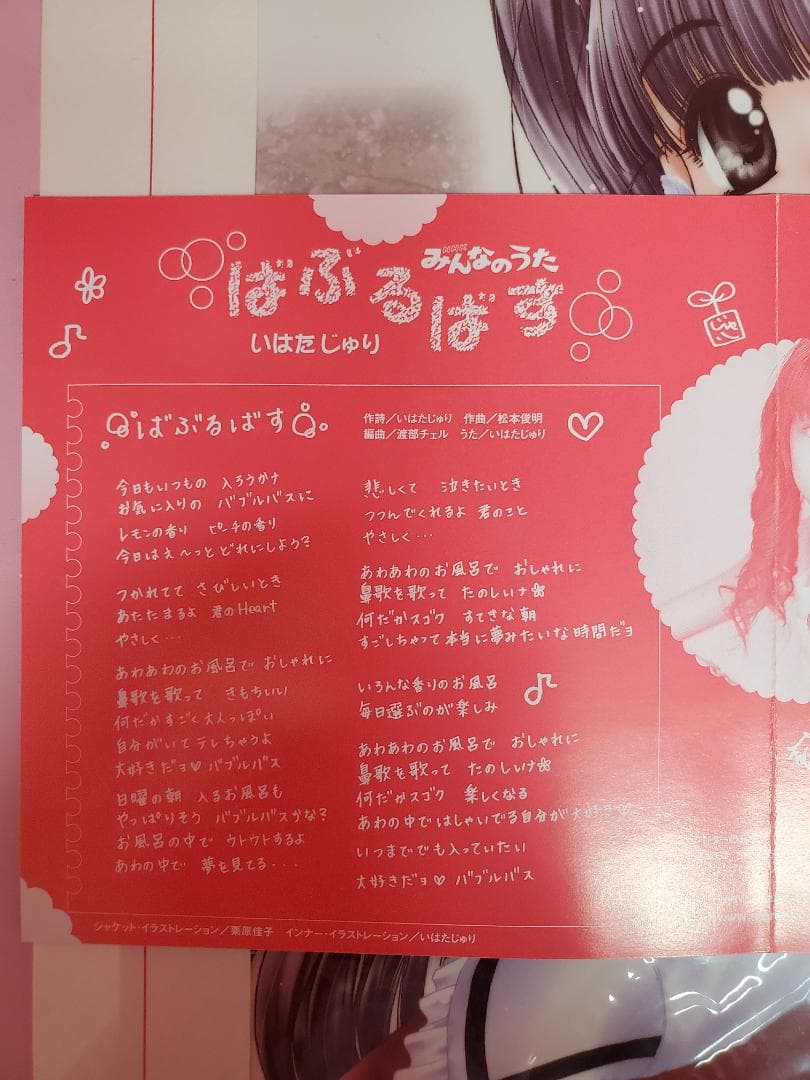 NHK
みんなのうた
ばぶるばす
いはたじゅり
ばぶるばす
作詩／いはたじゅり 作曲／松本俊明
編曲／渡部チェル うた／いはたじゅり
今日もいつもの 入ろうかナ
お気に入りの バブルバスに
レモンの香り ピーチの香り
今日はえ〜っと どれにしよう?
つかれてて さびしいとき
あたたまるよ 君のHeart
やさしく…
あわあわのお風呂で おしゃれに
鼻歌を歌って きもちいい
何だかすごく大人っぽい
自分がいてテレちゃうよ
大好きだョ♡バブルバス
日曜の朝 入るお風呂も
やっぱりそう バブルバスかな?
お風呂の中で ウトウトするよ
あわの中で 夢を見てる...
悲しくて 泣きたいとき
つつんでくれるよ 君のこと
やさしく…
あわあわのお風呂で おしゃれに
鼻歌を歌って たのしいナ
何だかスゴク すてきな朝
すごしちゃって本当に夢みたいな時間だョ
いろんな香りのお風呂
毎日選ぶのが楽しみ
あわあわのお風呂で おしゃれに
鼻歌を歌って たのしいナ
何だかスゴク 楽しくなる
あわの中ではしゃいでる自分が大好きサ
いつまででも入っていたい
大好きだョ♡バブルバス
ジャケット・イラストレーション／栗原佳子 インナー・イラストレーション／いはたじゅり